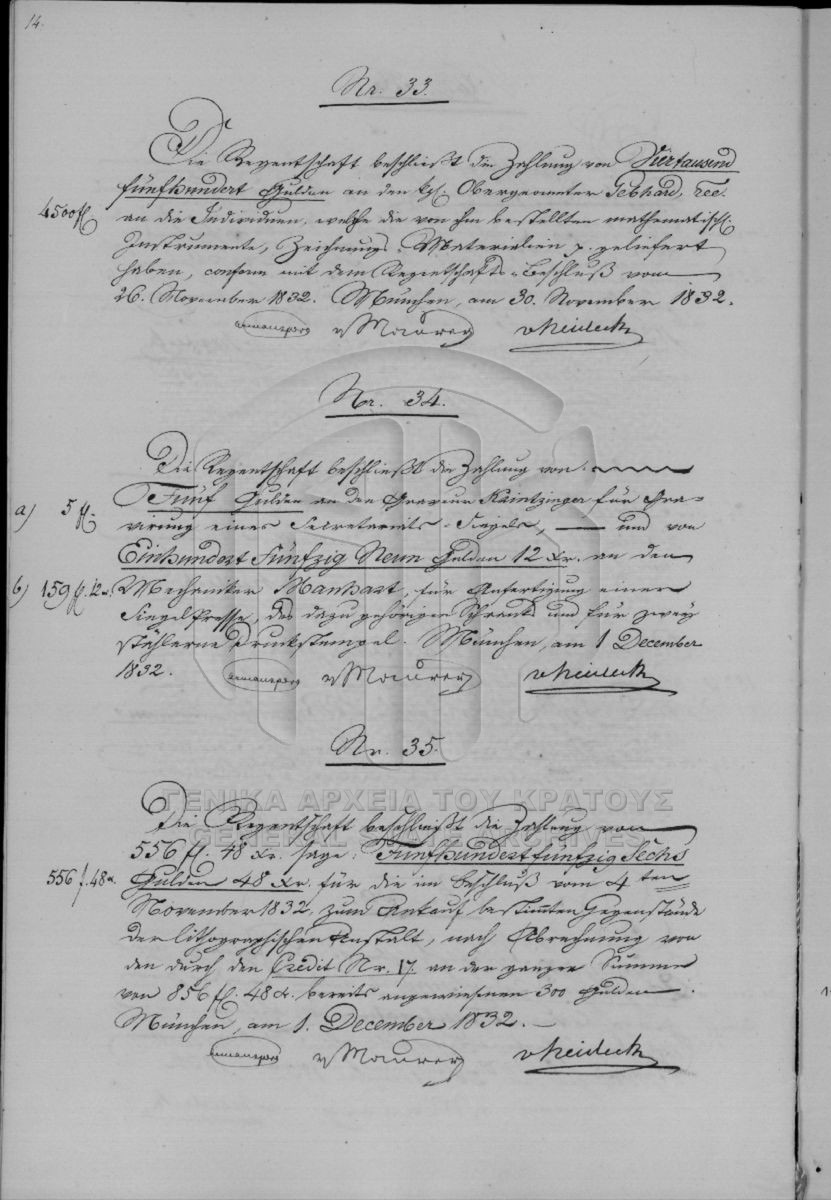 14.
Nr. 33.
Die Regentschaft beschließt die Zahlung von Viertausend
fünfhundert Gulden an den kgl. Obergeometer Gebhard,
4500 fl
an die Individuen, welche die von ihm bestellten mathematisch.
Instrumente, Zeichnungs-Materialien p. geliefert
haben, conform mit dem Regentschafts-Beschluß vom
26. November 1832. München, am 30. November 1832.
Armansperg v Maurer v Heideck
Nr. 34.
Die Regentschaft beschließt die Zahlung von
Fünf Gulden an den Graveur für Gra-
a) 5 fl
virung eines Secretariats-Siegels, — und von
Einhundert Fünfzig Neun Gulden 12 Xr. an den
b) 159 fl. 12 x. Mechaniker Manhart, für Anfertigung einer
Siegel Presse, des dazu gehörigen Schranks und für zwey
stählerne Druckstempel. München, am 1 December
1832. Armansperg v Maurer v Heideck
Nr. 35.
ΓΕΝΙΚΑ ΑΡΧΕΙΑ ΤΟΥ ΚΡΑΤΟΥΣ
GENERAL STATE ARCHIVES
Die Regentschaft beschließt die Zahlung von
556 fl. 48 Xr. sage: Fünfhundertfünfzig Sechs
556 f. 48 x. Gulden 48 Xr. für die im Beschluß vom 4ten
November 1832, zum Ankauf bestimmten Gegenstände
der lithographischen Anstalt, nach Abrechnung von
den durch den Credit Nr. 17. an der ganzen Summe
von 856 fl. 48 x. bereits angewiesenen 300 Gulden.
München, am 1. December 1832.
Armansperg v Maurer v Heideck